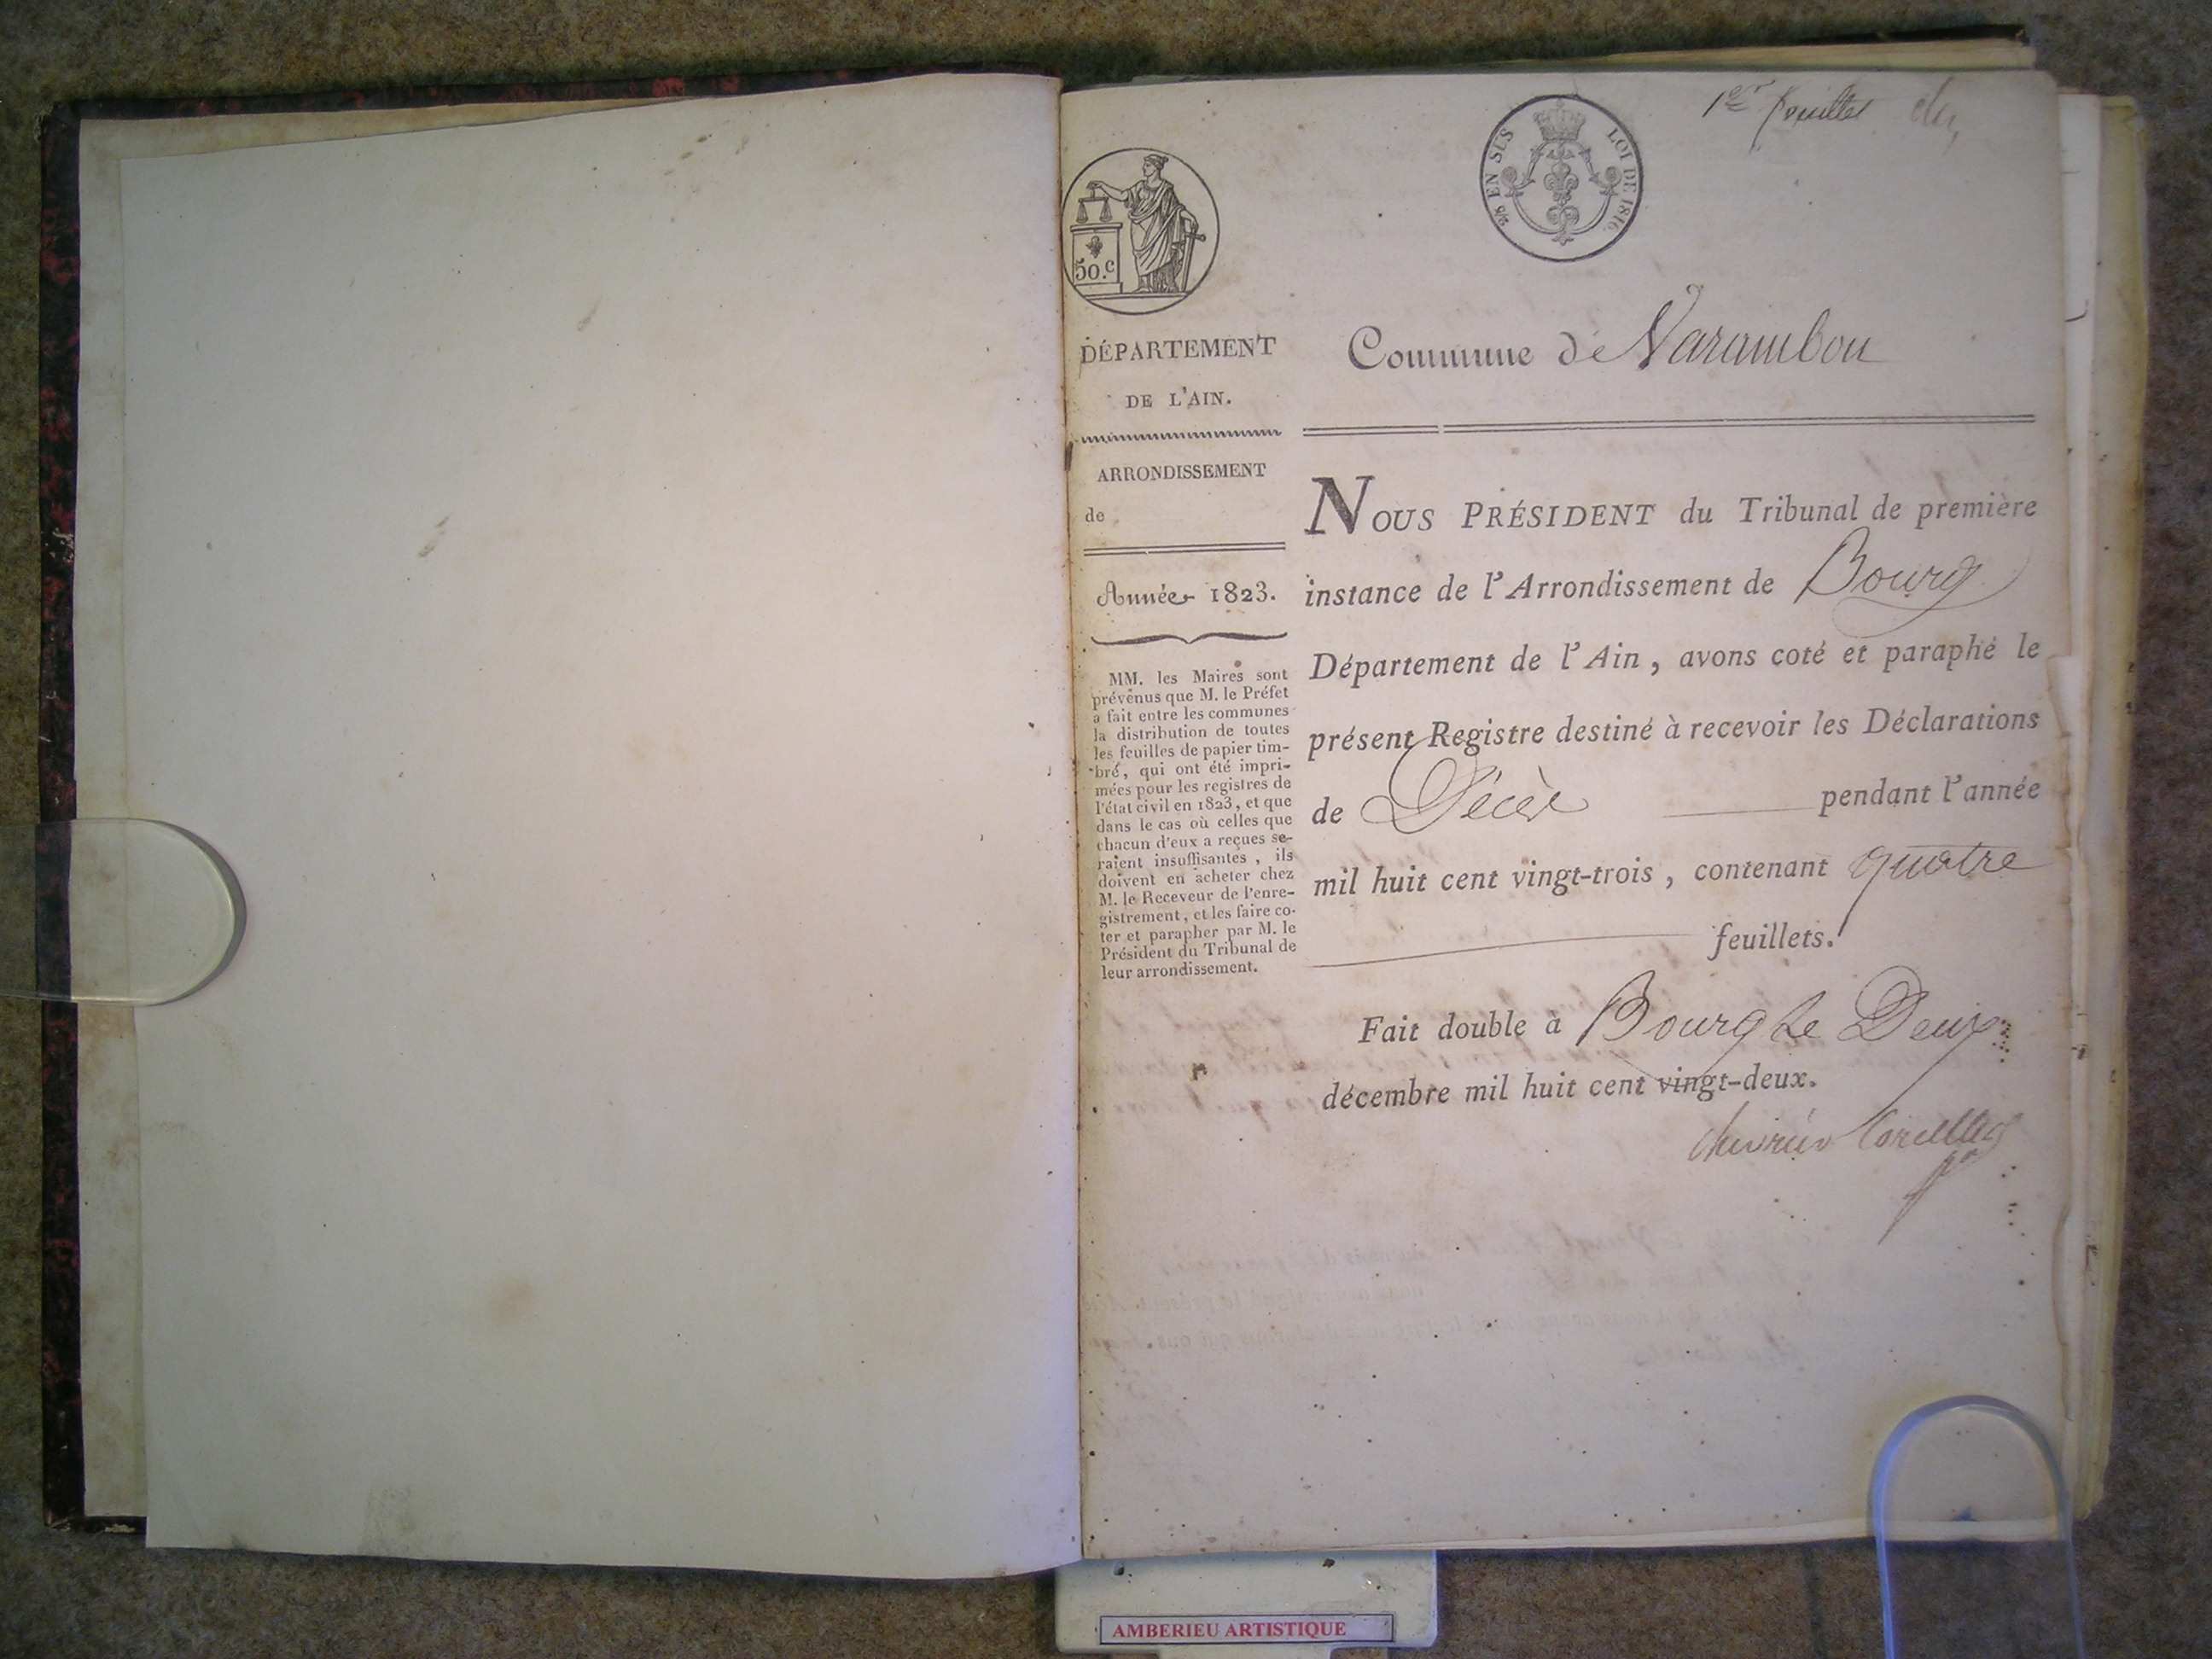 1er feuillet
50.c
2/5 EN SUS
LOI DE 1816.
DÉPARTEMENT
DE L'AIN.
ARRONDISSEMENT
de
Année 1823.
MM. les Maires sont
prévenus que M. le Préfet
a fait entre les communes
la distribution de toutes
les feuilles de papier tim-
bré, qui ont été impri-
mées pour les registres de
l'état civil en 1823, et que
dans le cas où celles que
chacun d'eux a reçues se-
raient insuffisantes, ils
doivent en acheter chez
M. le Receveur de l'enre-
gistrement, et les faire co-
ter et parapher par M. le
Président du Tribunal de
leur arrondissement.
Commune de Varambon
NOUS PRÉSIDENT du Tribunal de première
instance de l'Arrondissement de Bourg
Département de l'Ain, avons coté et paraphé le
présent Registre destiné à recevoir les Déclarations
de Décès pendant l'année
mil huit cent vingt-trois, contenant quatre
feuillets.
Fait double à Bourg le Deux
décembre mil huit cent vingt-deux.
AMBERIEU ARTISTIQUE